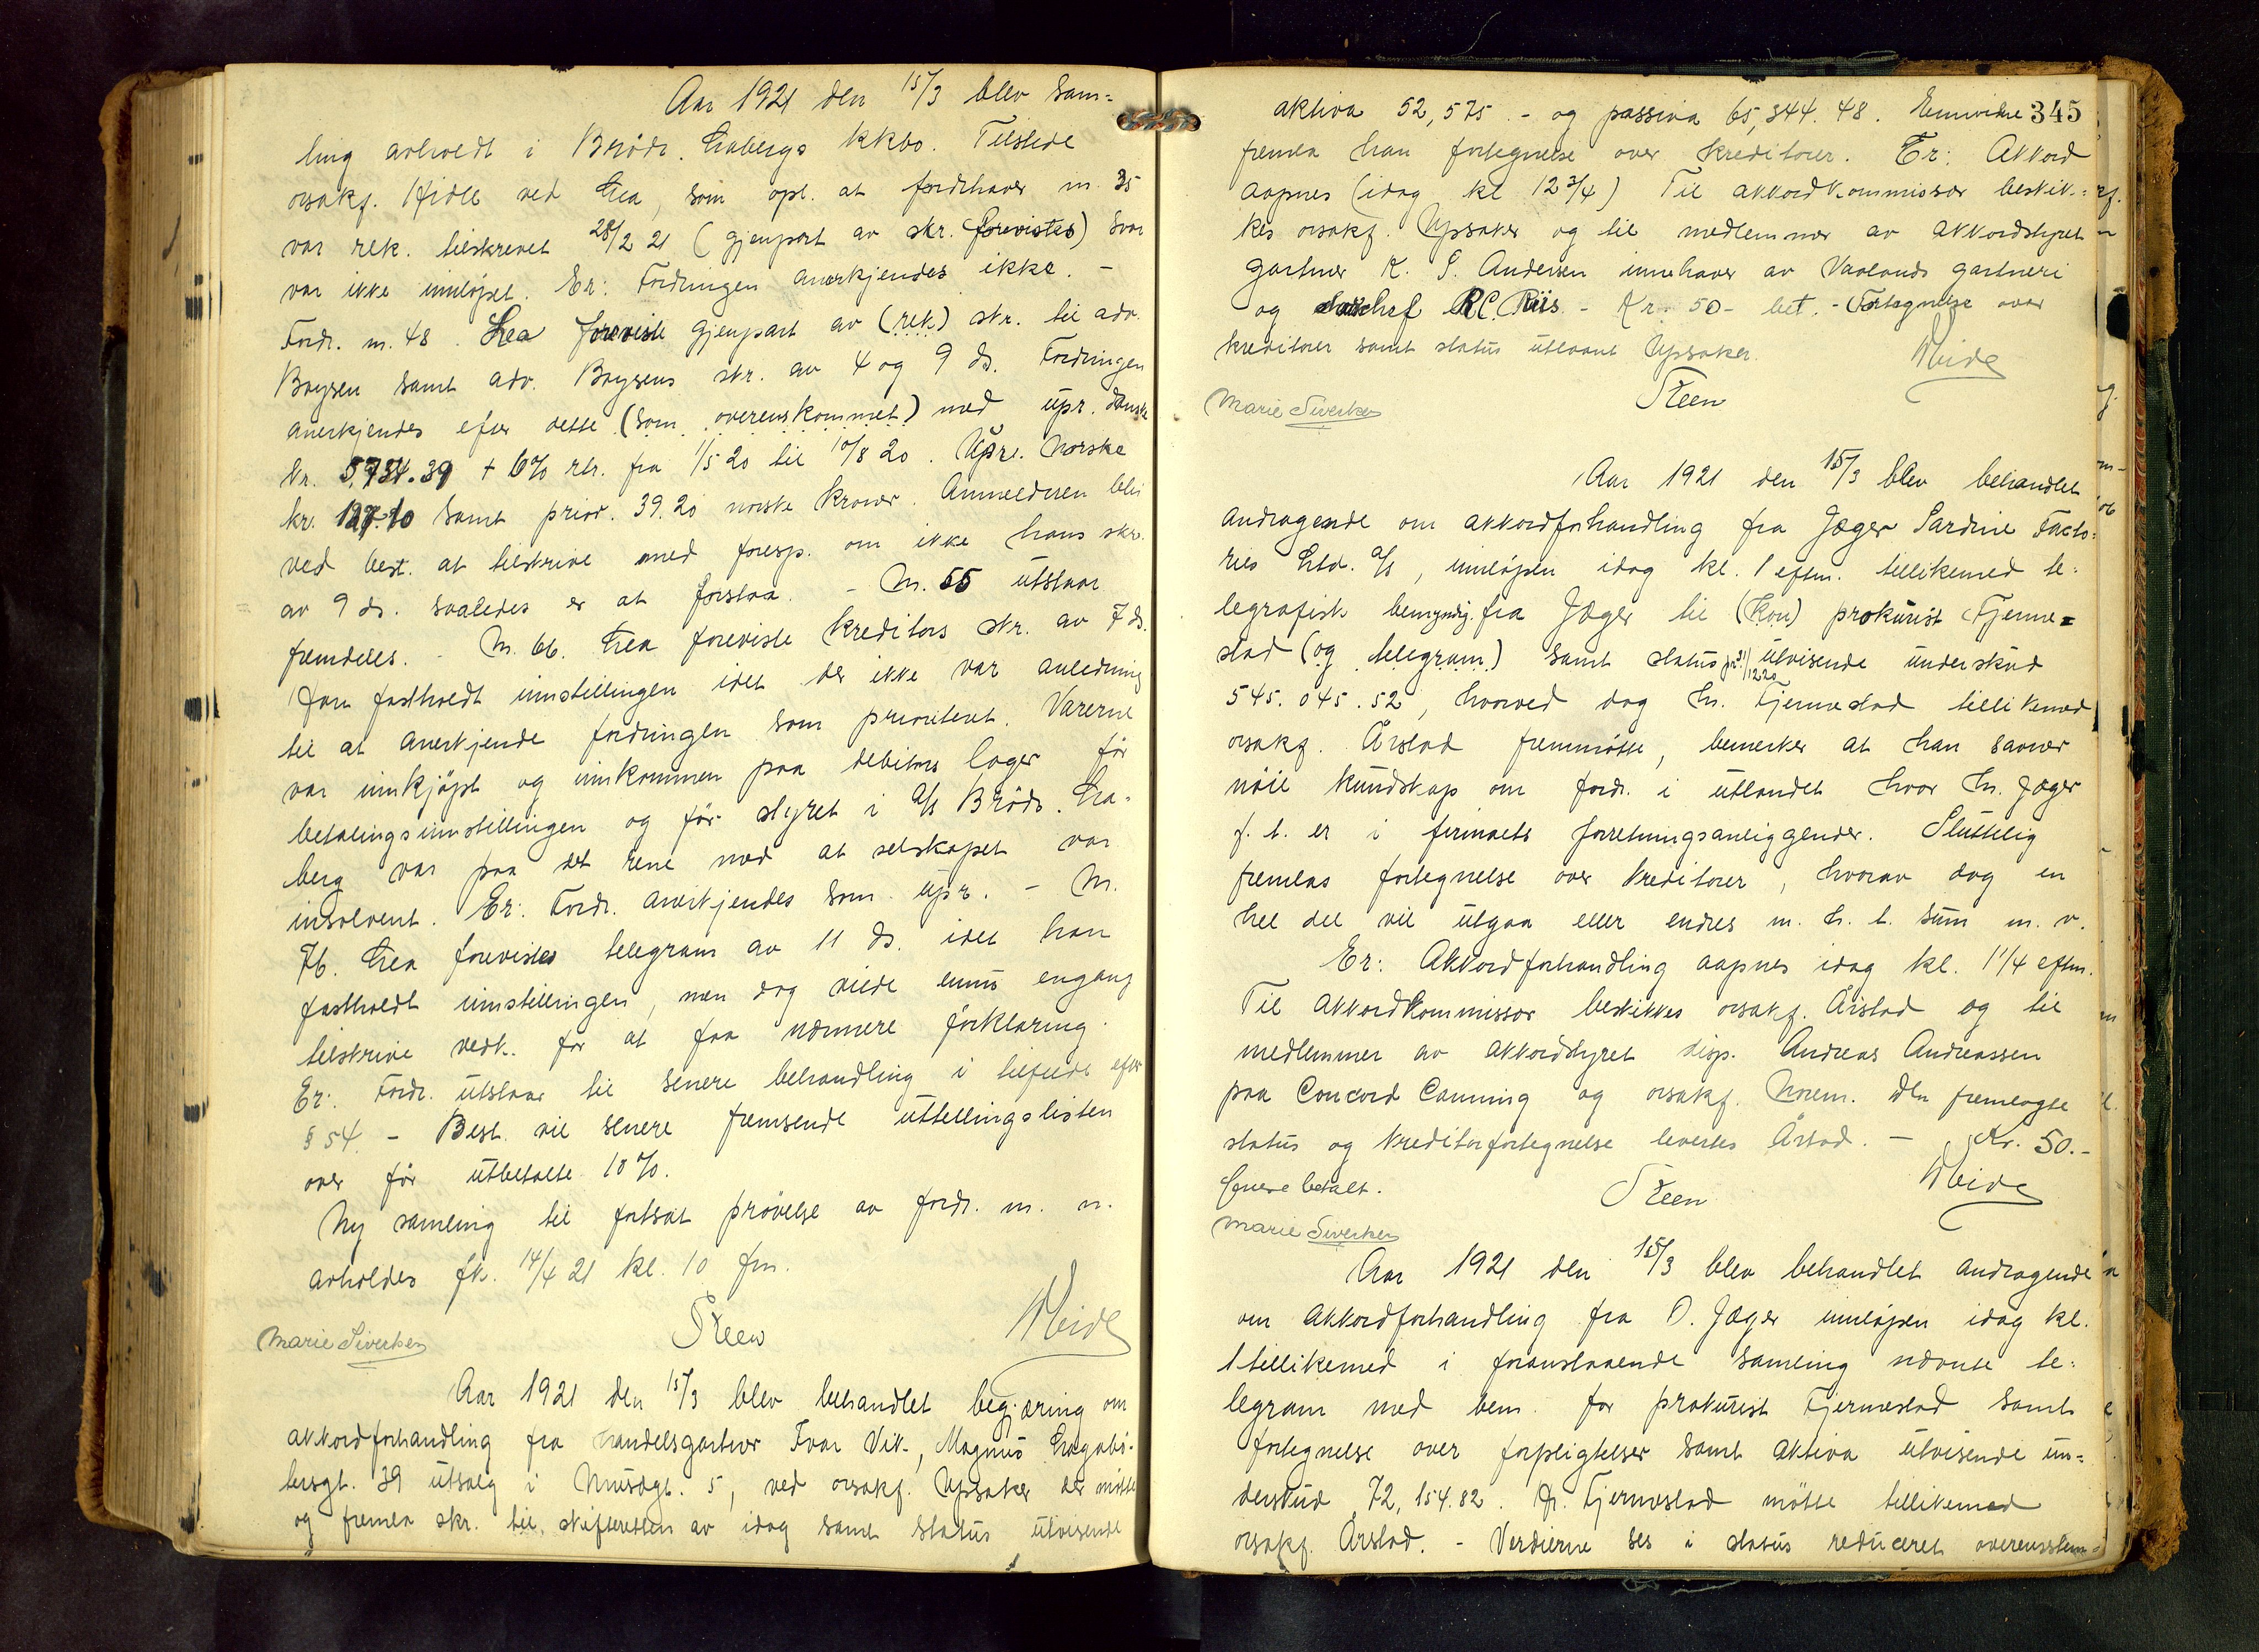 Aar 1921 den 15/3 blev sam=
ling avholdt i Brødr. Liabergs kkbo. Tilstede
orsakf. Hidle ved Lea, som opl. at fordrhaver m. 35
var rek. tilskrevet 28/2 21 (gjenpart av skr. forevistes) svar
var ikke innløpet. Er: Fordringen anerkjendes ikke. -
Fordr. m. 48. Lea foreviste gjenpart av (rek) skr. til adv.
Boysen samt adv. Boysens skr. av 4 og 9 ds. Fordringen
anerkjendes efter dette (som overenskommet) med upr. danske
kr. 5,734.39 + 6% rtr. fra 1/5 20 til 10/8 20. Upr. norske
kr. 127.10 samt prior. 39.20 norske kroner. Anmelderen blir
ved best. at tilskrive med foresp. om ikke hans skr.
av 9 ds. saaledes er at forstaa. - M. 55 utstaar
fremdeles. - M. 66. Lea foreviste kreditors skr. av 7 ds.
Han fastholdt innstillingen idet der ikke var anledning
til at anerkjende fordringen som prioritert. Varerne
var innkjøpt og innkommen paa debitors lager før
betalingsinnstillingen og før styret i A/S Brødr. Lia=
berg var paa det rene med at selskapet var
insolvent. Er: Fordr. anerkjendes som upr. - M.
76. Lea forevistes telegram av 11 ds. idet han
fastholdt innstillingen, men dog vilde ennu engang
tilskrive vedk. for at faa nærmere forklaring.
Er: Fordr. utstaar til senere behandling i tilfælde efter
§ 54. - Best. vil senere fremsende uttellingslisten
over før utbetalte 10%.
Ny samling til fortsat prøvelse av fordr. m. v.
avholdes fk. 14/4 21 kl. 10 fm.
Marie Sivertsen Steen Meide
Aar 1921 den 15/3 blev behandlet begjæring om
akkordforhandling fra handelsgartner Ivar Vik, Magnus Lagabø-
tersgt. 39 utsalg i Musegt. 5, ved orsakf. Upsaker der møtte
og fremla skr. til skifteretten av idag samt status utvisende
345
aktiva 52,575.- og passiva 65,344.48. Ennvidre
fremla han fortegnelse over kreditorer. Er: Akkord
aapnes (idag kl 12 3/4) Til akkordkommissær beskik-
kes orsakf. Upsaker og til medlemmer av akkordstyret
gartner K. S. Andersen innehaver av Vaalands gartneri
og R C. Riis. - Kr. 50- bet. - Fortegnelse over
kreditorer samt status utlaant Upsaker.
Marie Sivertsen Steen Meide
Aar 1921 den 15/3 blev behandlet
andragende om akkordforhandling fra Jæger Sardine Facto=
ries Ltd. A/S, innløpen idag kl. 1 eftm. tillikemed te=
legrafisk bemyndig. fra Jæger til (kon) prokurist Fjerme=
stad (og telegram) samt status pr 31/12 20 utvisende underskud
545.045.52, hvorved dog hr. Fjermestad tillikemed
orsakf. Årstad fremmøtte, bemerker at han savner
nøie kundskap om fordr. i utlandet hvor hr. Jæger
f. t. er i firmaets forretningsanliggender. Sluttelig
fremlas fortegnelse over kreditorer, hvorav dog en
hel del vil utgaa eller endres m. h. t. sum m. v.
Er: Akkordforhandling aapnes idag kl. 1 1/4 eftm.
Til akkordkommissær beskikkes orsakf. Årstad og til
medlemmer av akkordstyret disp. Andreas Andreassen
paa Concord Canning og orsakf. Norem. Den fremlagte
status og kreditorfortegnelse levertes Årstad. - Kr. 50.-
senere betalt. Steen Meide
Marie Sivertsen
Aar 1921 den 15/3 blev behandlet andragende
om akkordforhandling fra O. Jæger innløpen idag kl.
1 tillikemed i foranstaaende samling nævnte te=
legram med bem. for prokurist Fjermestad samt
fortegnelse over forpligtelser samt aktiva utvisende un=
derskud 72,154.82. Hr. Fjermestad møtte tillikemed
orsakf. Årstad. - Verdierne ses i status reduceret overensstem=